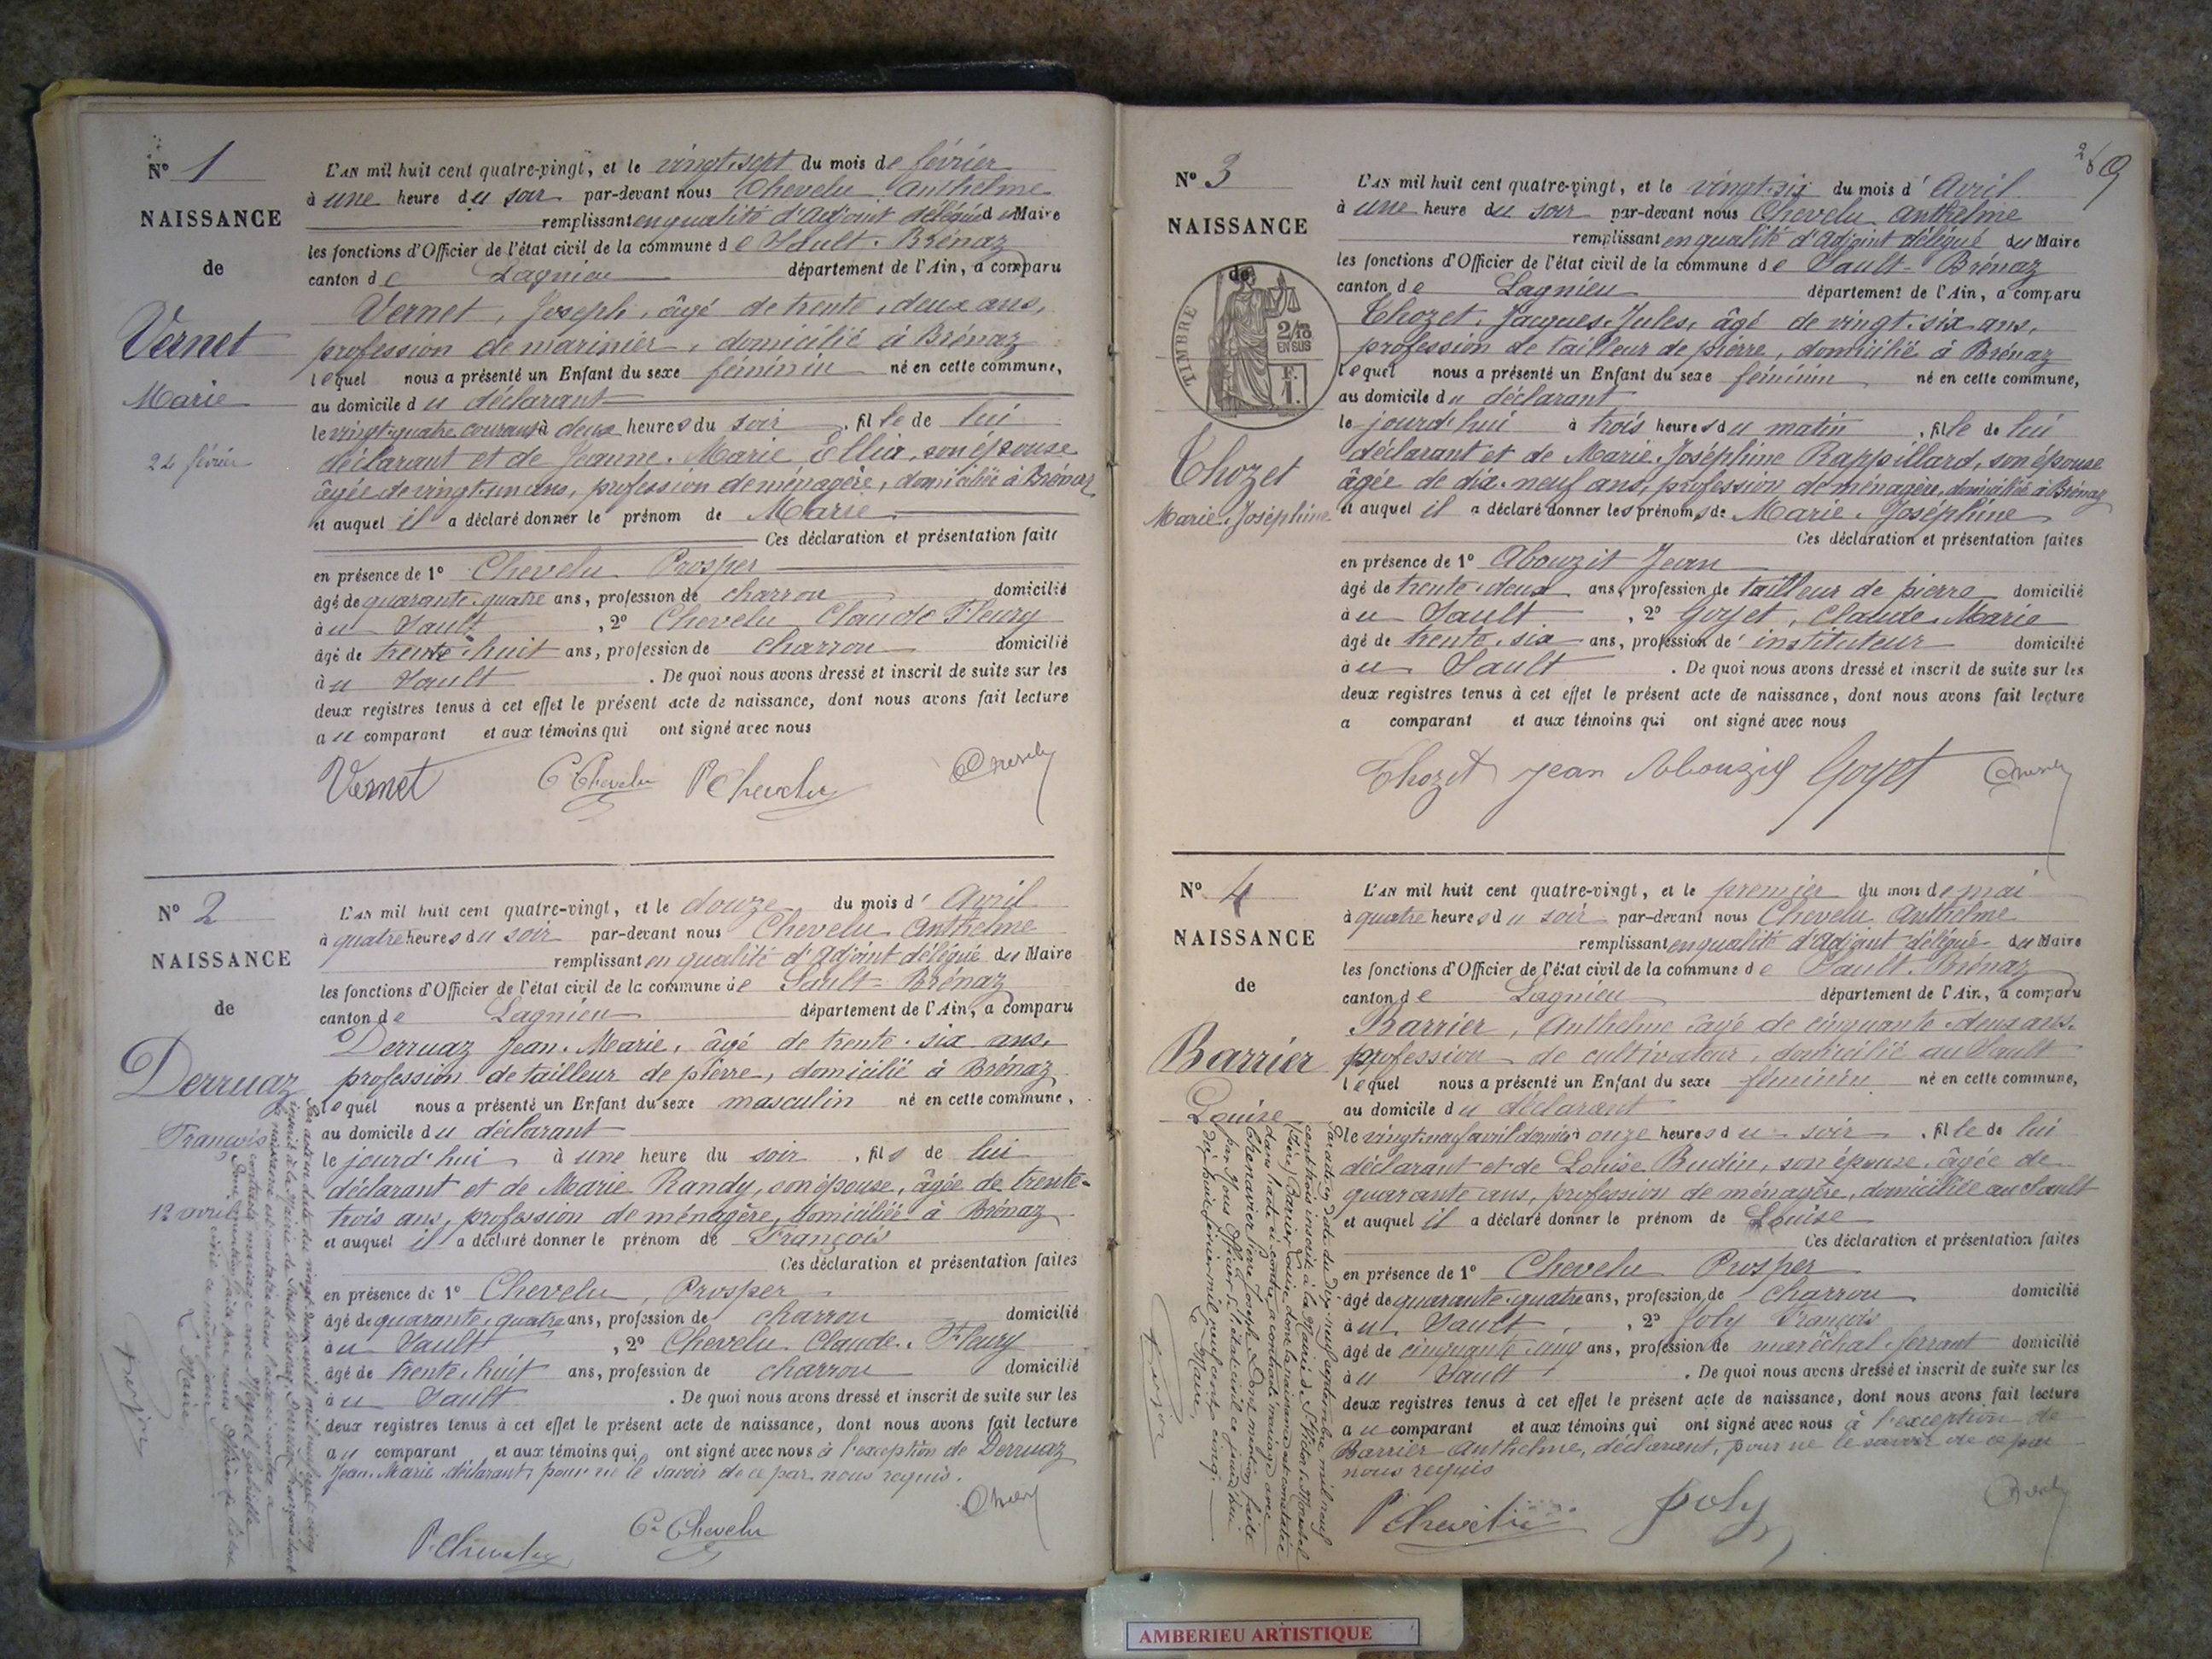 Nº 1
NAISSANCE
de
Vernet
Marie
24 février
L'AN mil huit cent quatre-vingt, et le vingt-sept du mois de février
à une heure du soir par-devant nous Chevelu Anthelme
remplissant en qualité d'adjoint délégué du Maire
les fonctions d'Officier de l'état civil de la commune de Sault-Brénaz
canton de Lagnieu département de l'Ain, a comparu
Vernet, Joseph, âgé de trente-deux ans,
profession de marinier, domicilié à Brénaz
lequel nous a présenté un Enfant du sexe féminin né en cette commune,
au domicile du déclarant
le vingt-quatre courant à deux heures du soir, fille de lui
déclarant et de Jeanne-Marie Ellia, son épouse
âgée de vingt-un ans, profession de ménagère, domiciliée à Brénaz
et auquel il a déclaré donner le prénom de Marie
Ces déclaration et présentation faite
en présence de 1º Chevelu Prosper
âgé de quarante-quatre ans, profession de charron domicilié
au Sault, 2º Chevelu Claude Fleury
âgé de trente-huit ans, profession de charron domicilié
au Sault. De quoi nous avons dressé et inscrit de suite sur les
deux registres tenus à cet effet le présent acte de naissance, dont nous avons fait lecture
au comparant et aux témoins qui ont signé avec nous
Vernet C. Chevelu P Chevelu Chevelu
Nº 2
NAISSANCE
de
Derruaz
François
12 avril
L'AN mil huit cent quatre-vingt, et le douze du mois d'Avril
à quatre heures du soir par-devant nous Chevelu Anthelme
remplissant en qualité d'adjoint délégué du Maire
les fonctions d'Officier de l'état civil de la commune de Sault-Brénaz
canton de Lagnieu département de l'Ain, a comparu
Derruaz Jean-Marie, âgé de trente-six ans,
profession de tailleur de pierre, domicilié à Brénaz
lequel nous a présenté un Enfant du sexe masculin né en cette commune,
au domicile du déclarant
le jourd'hui à une heure du soir, fils de lui
déclarant et de Marie Randy, son épouse, âgée de trente-
trois ans, profession de ménagère, domiciliée à Brénaz
et auquel il a déclaré donner le prénom de François
Ces déclaration et présentation faites
en présence de 1º Chevelu, Prosper
âgé de quarante-quatre ans, profession de charron domicilié
au Sault, 2º Chevelu Claude-Fleury
âgé de trente-huit ans, profession de charron domicilié
au Sault. De quoi nous avons dressé et inscrit de suite sur les
deux registres tenus à cet effet le présent acte de naissance, dont nous avons fait lecture
au comparant et aux témoins qui ont signé avec nous à l'exception de Derruaz
Jean-Marie déclarant, pour ne le savoir de ce par nous requis.
P. Chevelu C. Chevelu Chevelu
Le Maire
Nº 3
NAISSANCE
de
TIMBRE
2/10
EN SUS
F.
1.
Thozet
Marie-Joséphine
L'AN mil huit cent quatre-vingt, et le vingt-six du mois d'Avril
à une heure du soir par-devant nous Chevelu Anthelme
remplissant en qualité d'adjoint délégué du Maire
les fonctions d'Officier de l'état civil de la commune de Sault-Brénaz
canton de Lagnieu département de l'Ain, a comparu
Thozet, Jacques-Jules, âgé de vingt-six ans,
profession de tailleur de pierre, domicilié à Brénaz
lequel nous a présenté un Enfant du sexe féminin né en cette commune,
au domicile du déclarant
le jourd'hui à trois heures du matin, fille de lui
déclarant et de Marie-Joséphine Rappillard, son épouse
âgée de dix-neuf ans, profession de ménagère, domiciliée à Brénaz
et auquel il a déclaré donner les prénoms de Marie-Joséphine
Ces déclaration et présentation faites
en présence de 1º Abouzit Jean
âgé de trente-deux ans, profession de tailleur de pierre domicilié
au Sault, 2º Goyet, Claude-Marie
âgé de trente-six ans, profession d'instituteur domicilié
au Sault. De quoi nous avons dressé et inscrit de suite sur les
deux registres tenus à cet effet le présent acte de naissance, dont nous avons fait lecture
a comparant et aux témoins qui ont signé avec nous
Thozet Jean Abouzit Goyet Chevelu
Nº 4
NAISSANCE
de
Barrier
Louise
L'AN mil huit cent quatre-vingt, et le premier du mois de mai
à quatre heures du soir par-devant nous Chevelu Anthelme
remplissant en qualité d'adjoint délégué du Maire
les fonctions d'Officier de l'état civil de la commune de Sault-Brénaz
canton de Lagnieu département de l'Ain, a comparu
Barrier, Anthelme âgé de cinquante-deux ans,
profession de cultivateur, domicilié au Sault
lequel nous a présenté un Enfant du sexe féminin né en cette commune,
au domicile du déclarant
le vingt-neuf avril dernier à onze heures du soir, fille de lui
déclarant et de Louise Budin, son épouse, âgée de
quarante ans, profession de ménagère, domiciliée au Sault
et auquel il a déclaré donner le prénom de Louise
Ces déclaration et présentation faites
en présence de 1º Chevelu Prosper
âgé de quarante-quatre ans, profession de charron domicilié
au Sault, 2º Joly François
âgé de cinquante-cinq ans, profession de maréchal-ferrant domicilié
au Sault. De quoi nous avons dressé et inscrit de suite sur les
deux registres tenus à cet effet le présent acte de naissance, dont nous avons fait lecture
au comparant et aux témoins qui ont signé avec nous à l'exception de
Barrier Anthelme, déclarant, pour ne le savoir de ce par
nous requis
P Chevelu Joly Chevelu
Le Maire,
AMBERIEU ARTISTIQUE